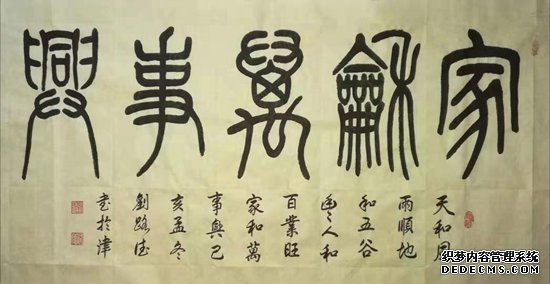 家龢萬事興
天和風
雨順地
和五谷
人和
百業旺
家和萬
事興己
亥孟冬
劉路
書於津
织梦内容管理系统
DEDECMS.COM